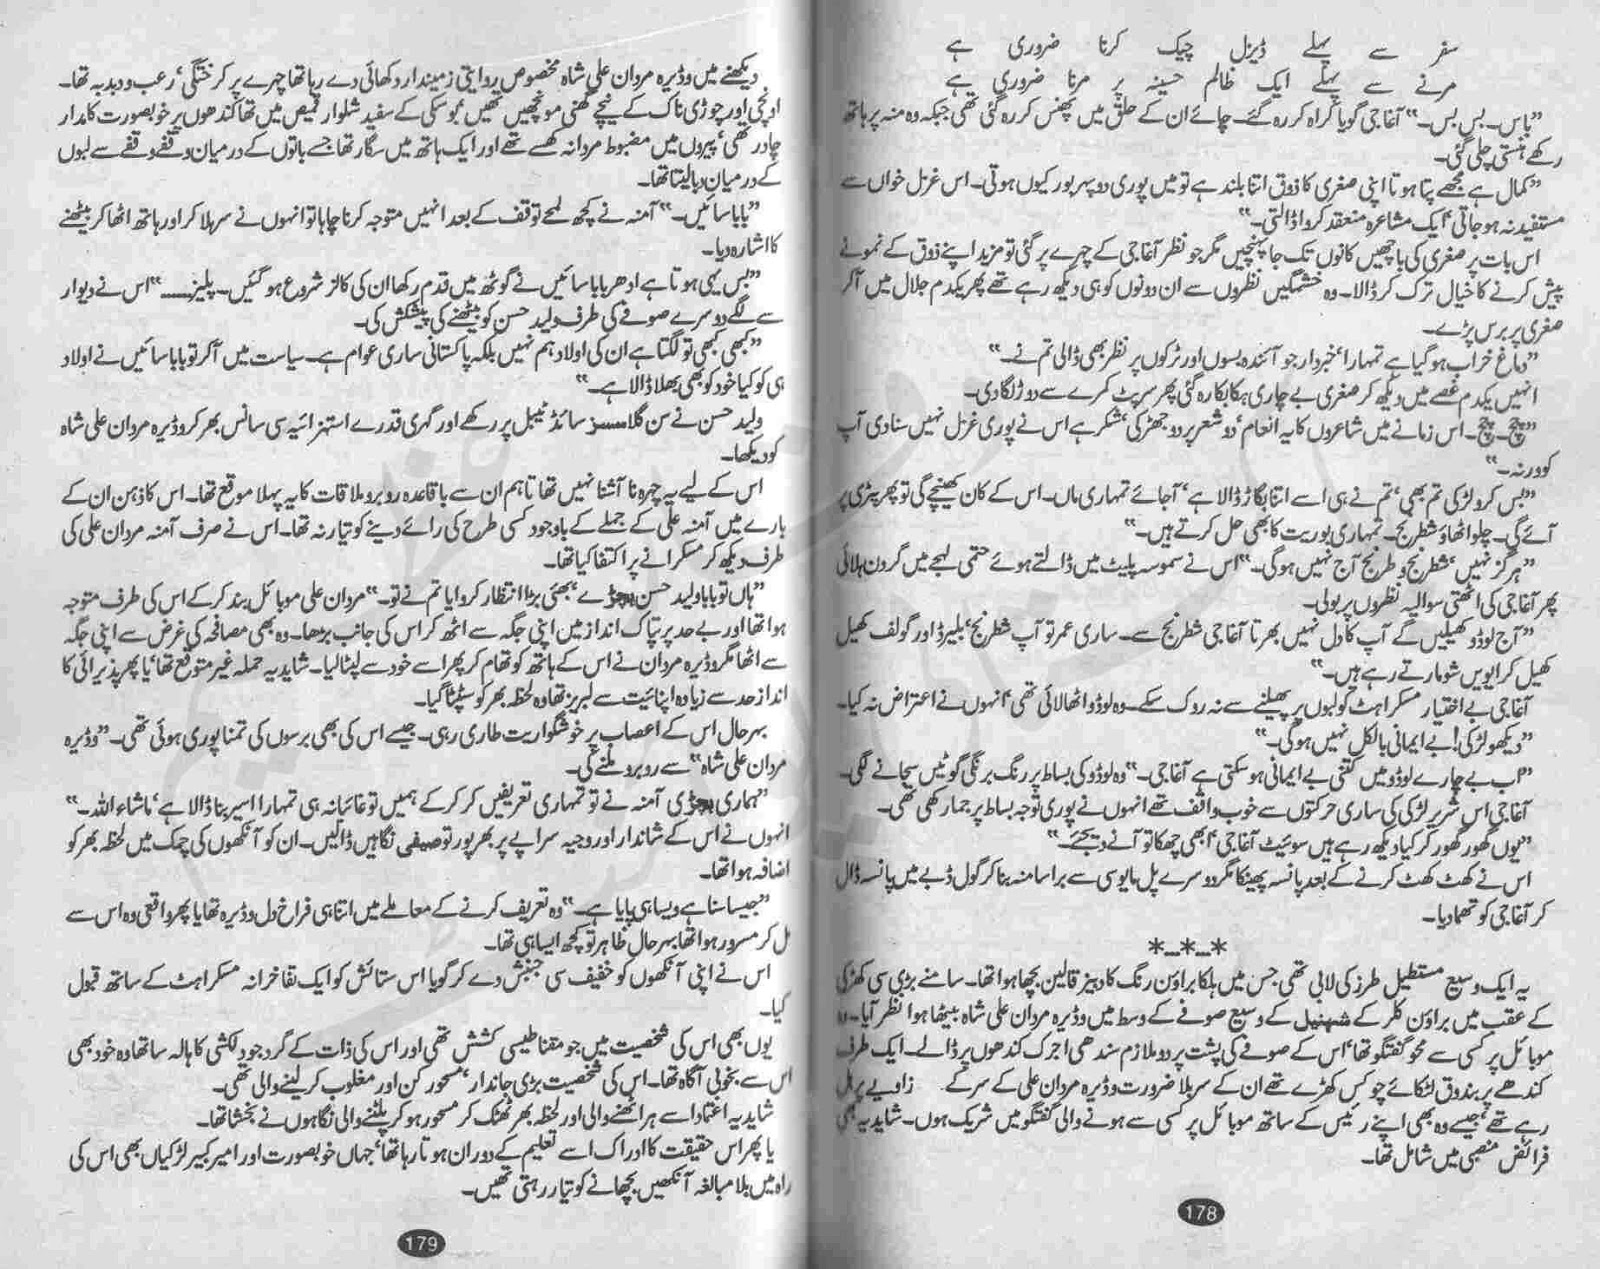 سفر سے پہلے ڈیزل چیک کرنا ضروری ہے
مرنے سے پہلے ایک ظالم حسینہ پر مرنا ضروری ہے
”باس۔ بس بس۔“ آغا جی گویا کراہ کر رہ گئے۔ چائے ان کے حلق میں پھنس کر رہ گئی تھی جبکہ وہ منہ پر ہاتھ
رکھے ہنستی چلی گئی۔
”کمال ہے مجھے پتا ہوتا اپنی صغری کا ذوق اتنا بلند ہے تو میں پوری دوپہر بور کیوں ہوتی۔ اس غزل خواں سے
مستفید نہ ہو جاتی‘ ایک مشاعرہ منعقد کروا ڈالتی۔“
اس بات پر صغری کی باچھیں کانوں تک جا پہنچیں مگر جو نظر آغا جی کے چہرے پر گئی تو مزید اپنے ذوق کے نمونے
پیش کرنے کا خیال ترک کر ڈالا۔ وہ خشمگیں نظروں سے ان دونوں کو ہی دیکھ رہے تھے پھر یکدم جلال میں آ کر
صغری پر برس پڑے۔
”دماغ خراب ہو گیا ہے تمہارا‘ خبردار جو آئندہ بسوں اور ٹرکوں پر نظر بھی ڈالی تم نے۔“
انہیں یکدم غصے میں دیکھ کر صغری بے چاری ہکا بکا رہ گئی پھر سرپٹ کمرے سے دوڑ لگا دی۔
”چچ۔ چچ۔ اس زمانے میں شاعروں کا یہ انعام‘ دو شعر پر دو جھڑکی‘ شکر ہے اس نے پوری غزل نہیں سنا دی آپ
کو ورنہ۔“
”بس کرو لڑکی تم بھی‘ تم نے ہی اسے اتنا بگاڑ ڈالا ہے‘ آ جائے تمہاری ماں۔ اس کے کان کھینچے گی تو پھر پٹری پر
آئے گی۔ چلو اٹھاؤ شطرنج۔ تمہاری بوریت کا بھی حل کرتے ہیں۔“
”ہرگز نہیں‘ شطرنج وطرنج آج نہیں ہو گی۔“ اس نے سموسہ پلیٹ میں ڈالتے ہوئے حتمی لہجے میں گردن ہلائی
پھر آغا جی کی اٹھتی سوالیہ نظروں پر بولی۔
”آج لوڈو کھیلیں گے آپ کا دل نہیں بھرتا آغا جی شطرنج سے۔ ساری عمر تو آپ شطرنج‘ بلیرڈ اور گولف کھیل
کھیل کر ایویں شو مارتے رہے ہیں۔“
آغا جی بے اختیار مسکراہٹ کو لبوں پر پھیلنے سے نہ روک سکے۔ وہ لوڈو اٹھا لائی تھی‘ انہوں نے اعتراض نہ کیا۔
”دیکھو لڑکی! بے ایمانی بالکل نہیں ہو گی۔“
”اب بے چارے لوڈو میں کتنی بے ایمانی ہو سکتی ہے آغا جی۔“ وہ لوڈو کی بساط پر رنگ برنگی گوٹیں سجانے لگی۔
آغا جی اس شریر لڑکی کی ساری حرکتوں سے خوب واقف تھے انہوں نے پوری توجہ بساط پر جما رکھی تھی۔
”یوں گھور گھور کر کیا دیکھ رہے ہیں سوئیٹ آغا جی‘ ابھی چھکا تو آنے دیجئے۔“
اس نے کھٹ کھٹ کرنے کے بعد پانسہ پھینکا مگر دوسرے پل مایوسی سے برا سا منہ بنا کر گول ڈبے میں پانسہ ڈال
کر آغا جی کو تھما دیا۔
*...*...*
یہ ایک وسیع مستطیل طرز کی لابی تھی جس میں ہلکا براؤن رنگ کا دبیز قالین بچھا ہوا تھا۔ سامنے بڑی سی کھڑکی
کے عقب میں براؤن کلر کے شہنیل کے وسیع صوفے کے وسط میں وڈیرہ مردان علی شاہ بیٹھا ہوا نظر آیا۔ وہ
موبائل پر کسی سے محو گفتگو تھا‘ اس کے صوفے کی پشت پر دو ملازم سندھی اجرک کندھوں پر ڈالے۔ ایک طرف
کندھے پر بندوق لٹکائے چوکس کھڑے تھے ان کے سر بلا ضرورت وڈیرہ مردان علی کے سر کے زاویے پر ہل
رہے تھے‘ جیسے وہ بھی اپنے رئیس کے ساتھ موبائل پر کسی سے ہونے والی گفتگو میں شریک ہوں۔ شاید یہ بھی
فرائض منصبی میں شامل تھا۔
178
دیکھنے میں وڈیرہ مردان علی شاہ مخصوص روایتی زمیندار دکھائی دے رہا تھا چہرے پر کرختگی‘ رعب و دبدبہ تھا۔
اونچی اور چوڑی ناک کے نیچے گھنی مونچھیں تھیں‘ بوسکی کے سفید شلوار قمیض میں تھا کندھوں پر خوبصورت کامدار
چادر تھی‘ پیروں میں مضبوط مردانہ کھسے تھے اور ایک ہاتھ میں سگار تھا جسے باتوں کے درمیان وقفے وقفے سے لبوں
کے درمیان دبا لیتا تھا۔
”بابا سائیں۔“ آمنہ نے کچھ لمحے توقف کے بعد انہیں متوجہ کرنا چاہا تو انہوں نے سر ہلا کر اور ہاتھ اٹھا کر بیٹھنے
کا اشارہ دیا۔
”بس یہی ہوتا ہے ادھر بابا سائیں نے گوٹھ میں قدم رکھا ان کی کالز شروع ہو گئیں۔ پلیز......“ اس نے دیوار
سے لگے دوسرے صوفے کی طرف ولید حسن کو بیٹھنے کی پیشکش کی۔
”کبھی کبھی تو لگتا ہے ان کی اولاد ہم نہیں بلکہ پاکستانی ساری عوام ہے۔ سیاست میں آ کر تو بابا سائیں نے اولاد
ہی کو کیا خود کو بھی بھلا ڈالا ہے۔“
ولید حسن نے سن گلاسسز سائڈ ٹیبل پر رکھے اور گہری قدرے استہزائیہ سی سانس بھر کر وڈیرہ مردان علی شاہ
کو دیکھا۔
اس کے لیے یہ چہرہ نا آشنا نہیں تھا تاہم ان سے باقاعدہ روبرو ملاقات کا یہ پہلا موقع تھا۔ اس کا ذہن ان کے
بارے میں آمنہ علی کے جملے کے باوجود کسی طرح کی رائے دینے کو تیار نہ تھا۔ اس نے صرف آمنہ مردان علی کی
طرف دیکھ کر مسکرانے پر اکتفا کیا تھا۔
”ہاں تو بابا ولید حسن بھئی بڑا انتظار کروایا تم نے تو۔“ مردان علی موبائل بند کر کے اس کی طرف متوجہ
ہوا تھا اور بے حد پرتپاک انداز میں اپنی جگہ سے اٹھ کر اس کی جانب بڑھا۔ وہ بھی مصافحہ کی غرض سے اپنی جگہ
سے اٹھا مگر وڈیرہ مردان نے اس کے ہاتھ کو تھام کر پھر اسے خود سے لپٹا لیا۔ شاید یہ حملہ غیر متوقع تھا‘ یا پھر پذیرائی کا
انداز حد سے زیادہ اپنائیت سے لبریز تھا وہ لحظہ بھر کو سٹپٹا گیا۔
بہرحال اس کے اعصاب پر خوشگواریت طاری رہی۔ جیسے اس کی بھی برسوں کی تمنا پوری ہوئی تھی۔ ”وڈیرہ
مردان علی شاہ“ سے روبرو ملنے کی۔
”ہماری آمنہ نے تو تمہاری تعریفیں کر کر کے ہمیں تو غائبانہ ہی تمہارا اسیر بنا ڈالا ہے‘ ماشاء اللہ۔“
انہوں نے اس کے شاندار اور وجیہ سراپے پر بھرپور توصیفی نگاہیں ڈالیں۔ ان کو آنکھوں کی چمک میں لحظہ بھر کو
اضافہ ہوا تھا۔
”جیسا سنا ہے ویسا ہی پایا ہے۔“ وہ تعریف کرنے کے معاملے میں اتنا ہی فراخ دل وڈیرہ تھا یا پھر واقعی وہ اس سے
مل کر مسرور ہوا تھا بہرحال ظاہر تو کچھ ایسا ہی تھا۔
اس نے اپنی آنکھوں کو خفیف سی جنبش دے کر گویا اس ستائش کو ایک تفاخرانہ مسکراہٹ کے ساتھ قبول
کیا۔
یوں بھی اس کی شخصیت میں جو مقناطیسی کشش تھی اور اس کی ذات کے گرد جو دلکشی کا ہالہ سا تھا وہ خود بھی
اس سے بخوبی آگاہ تھا۔ اس کی شخصیت بڑی جاندار‘ مسحور کن اور مغلوب کر لینے والی تھی۔
شاید یہ اعتماد اسے ہر اٹھنے والی اور لحظہ بھر ٹھٹک کر مسحور ہو کر پلٹنے والی نگاہوں نے بخشا تھا۔
یا پھر اس حقیقت کا ادراک اسے تعلیم کے دوران ہوتا رہا تھا‘ جہاں خوبصورت اور امیر کبیر لڑکیاں بھی اس کی
راہ میں بلا مبالغہ آنکھیں بچھانے کو تیار رہتی تھیں۔
179